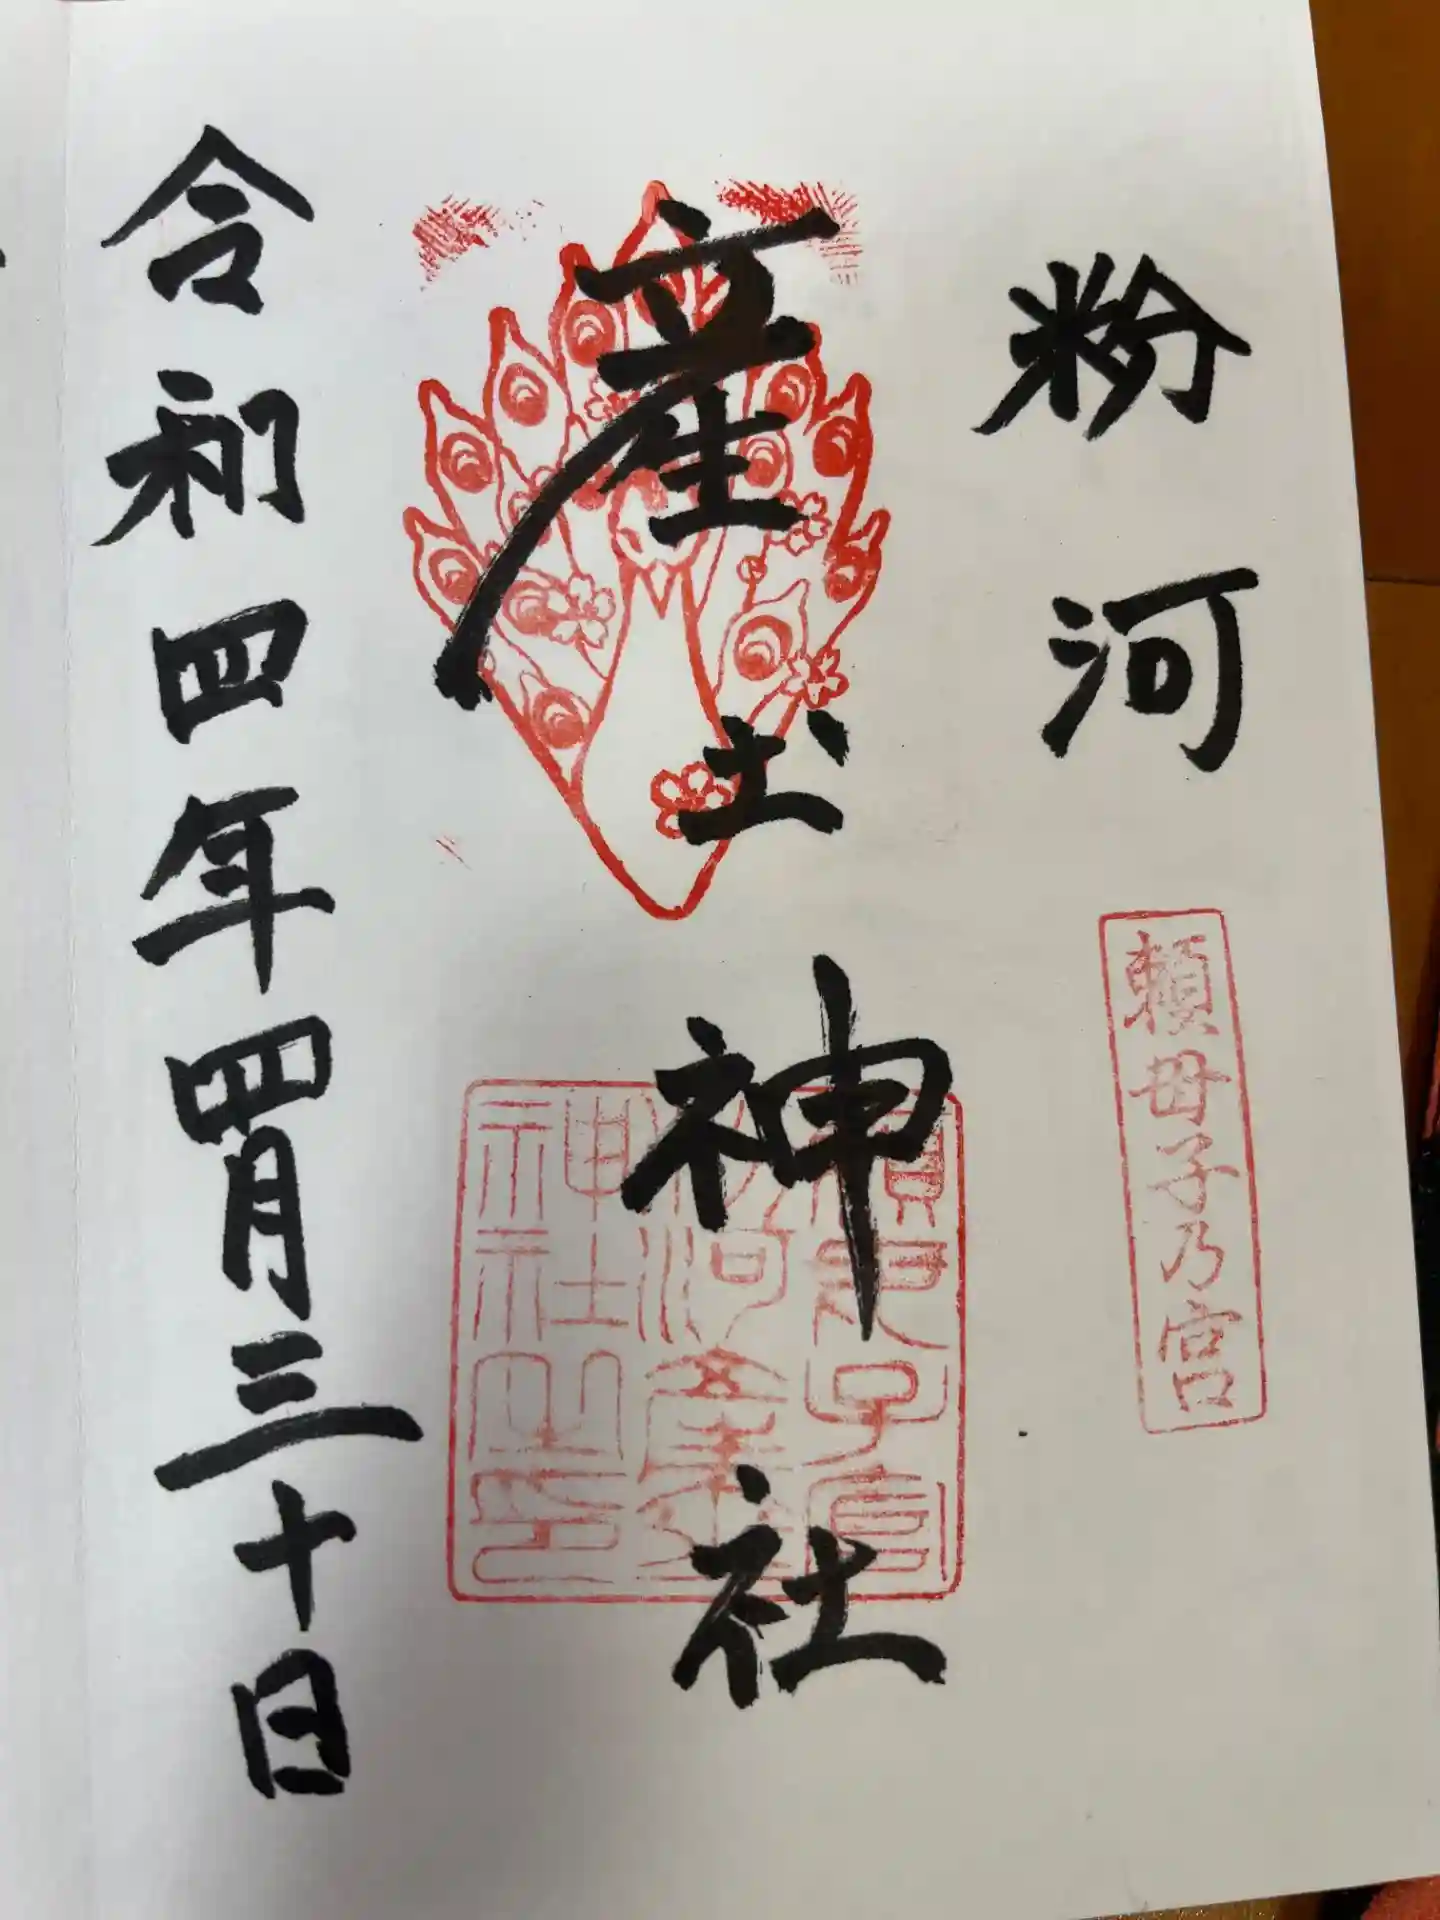 粉河
頼母子乃宮
産土神社
令和四年四月三十日